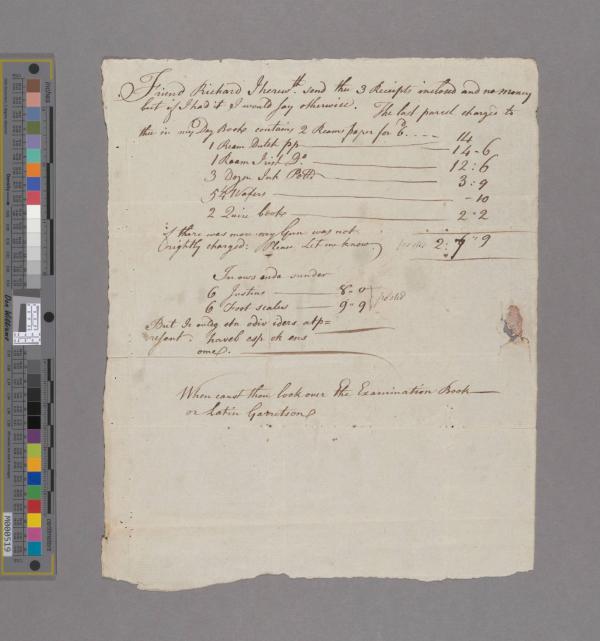 Friend Richard I herewth. send thee 3 Receipts inclosed and no money
but if I had it I would say otherwise. The last parcel charged to
thee in my Day Book contains 2 Reams paper for B. 14
1 Ream Dutch pp 14-6
1 Ream Irish Do 12:6
3 Dozen Ink Potts 3:9
Wafers -10
2 Quire books 2-2
if there was more my Gun was not
rightly charged: Please Let me know posted 2: 9
In ows anda sunder
6 Justins 8-0
6 Foot scales 9-9 posted
But Ic
resent. haveb esp ok ens
omed.
When canst thou look over the Examination Book
or Latin Garretson